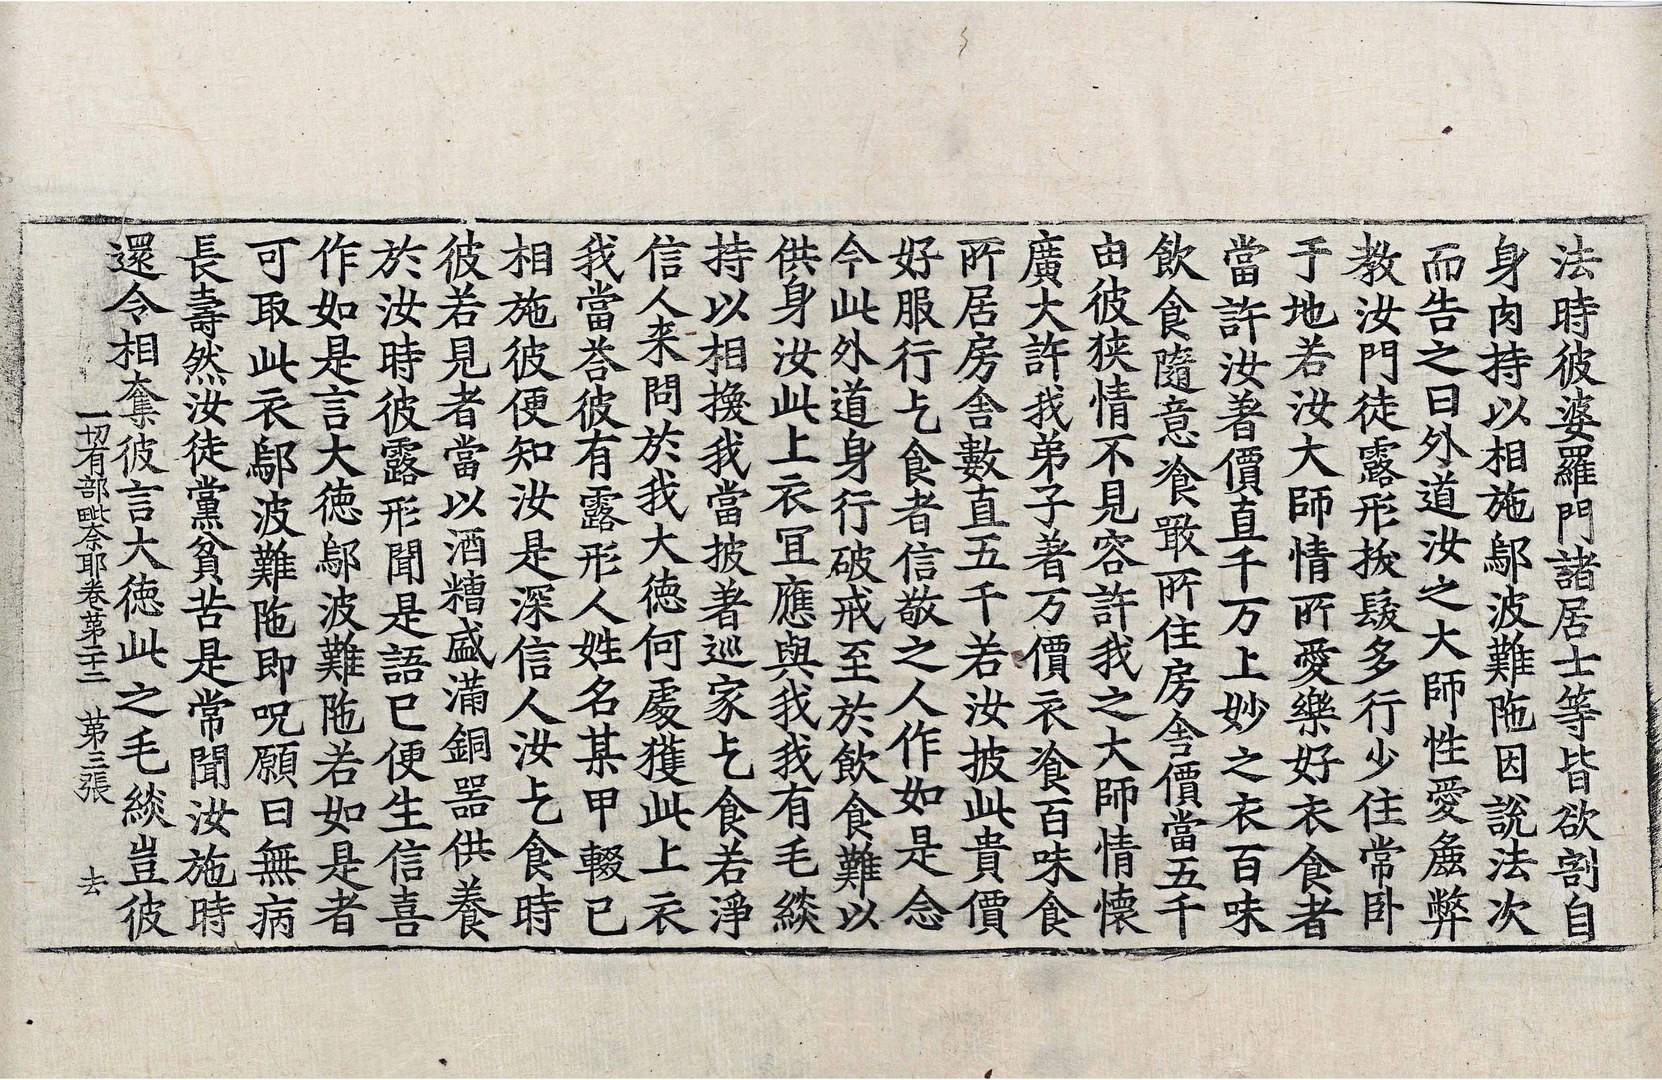 法時彼婆羅門諸居士等皆欲割自
身肉持以相施鄔波難陁因說法次
而告之曰外道汝之大師性愛麁弊
教汝門徒露形拔髮多行少住常卧
于地若汝大師情所愛樂好衣食者
當許汝著價直千万上妙之衣百味
飲食隨意飡噉所住房舍價當五千
由彼狹情不見容許我之大師情懷
廣大許我弟子著万價衣飡百味食
所居房舍數直五千若汝披此貴價
好服行乞食者信敬之人作如是念
今此外道身行破戒至於飲食難以
供身汝此上衣冝應與我我有毛緂
持以相換我當披著巡家乞食若淨
信人来問於我大德何處獲此上衣
我當荅彼有露形人姓名某甲輟已
相施彼便知汝是深信人汝乞食時
彼若見者當以酒糟盛滿銅器供養
於汝時彼露形聞是語已便生信喜
作如是言大德鄔波難陁若如是者
可取此衣鄔波難陁即呪願曰無病
長壽然汝徒黨貧苦是常聞汝施時
還令相奪彼言大德此之毛緂豈彼
一切有部毗奈耶卷第二十二 第三張 去